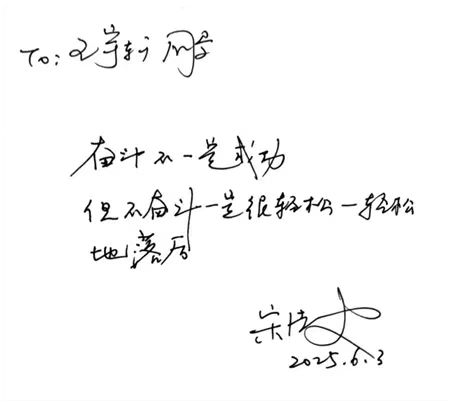 To: 王宇轩 同学
奋斗不一定成功
但不奋斗一定很轻松—轻松
地落后
宋浩
2025.6.3